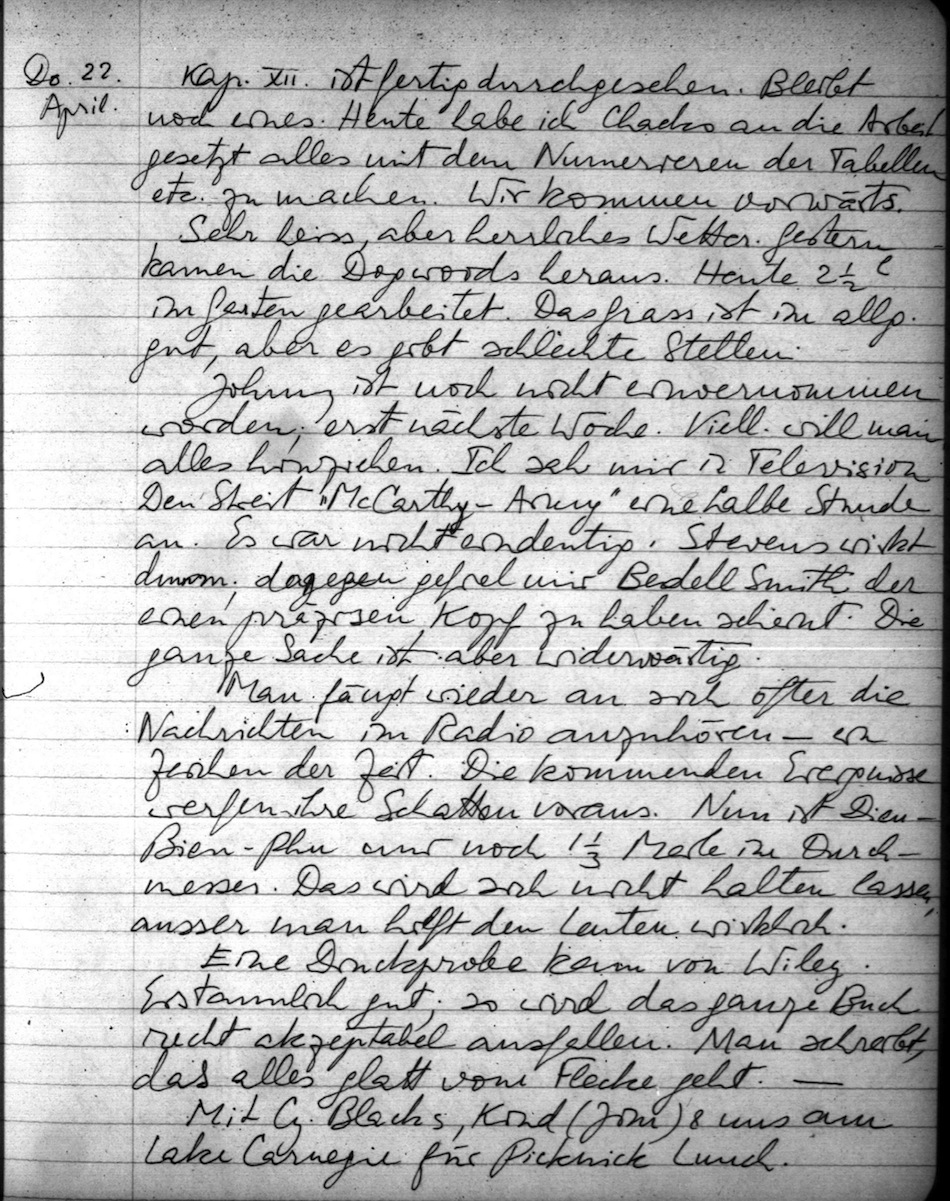 Do. 22. April.
Kap. XII. ist fertig durchgesehen. Bleibt
noch eines. Heute habe ich Chacko an die Arbeit
gesetzt alles mit dem Numerieren der Tabellen
etc. zu machen. Wir kommen vorwärts.
Sehr heiss, aber herrliches Wetter. Gestern
kamen die Dogwoods heraus. Heute 2 ½
im Garten gearbeitet. Das Grass ist im allg.
gut, aber es gibt schlechte Stellen.
Johnny ist noch nicht einvernommen
worden; erst nächste Woche. Viell. will man
alles hinziehen. Ich sah mir in Television
Den Streit "McCarthy – Army" eine halbe Stunde
an. Es war nicht eindeutig. Stevens wirkt
dumm; dagegen gefiel mir Bedell Smith der
einen präzisen Kopf zu haben scheint. Die
ganze Sache ist aber widerwärtig.
Man fängt wieder an sich öfter die
Nachrichten im Radio anzuhören – ein
Zeichen der Zeit. Die kommenden Ereignisse
werfen ihre Schatten voraus. Nun ist Dien-
Bien-Phu nur noch 1⅓ Meile im Durch-
messer. Das wird sich nicht halten lassen,
ausser man hilft den Leuten wirklich.
Eine Druckprobe kam von Wiley.
Erstaunlich gut; so wird das ganze Buch
recht akzeptabel ausfallen. Man schreibt,
das alles glatt vom Flecke geht. —
Mit Cy. Blacks, Kind (Jim) & uns am
Lake Carnegie für Picknick Lunch.